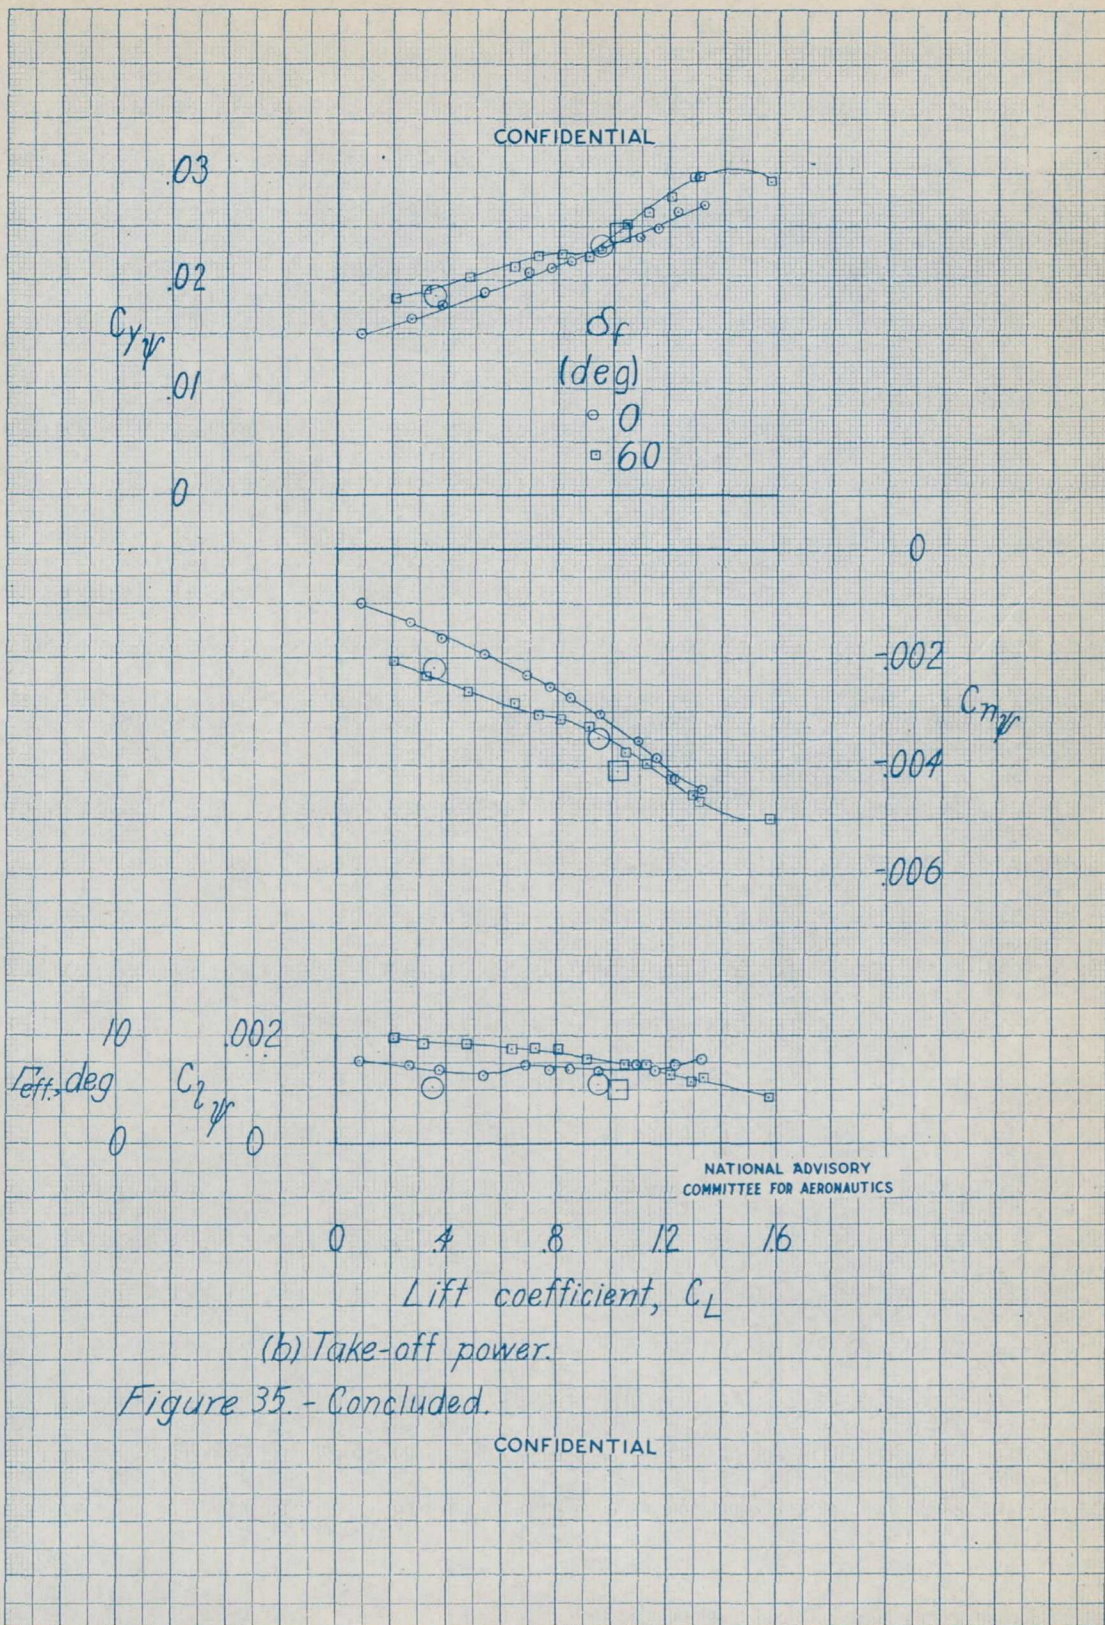 CONFIDENTIAL
.03
.02
CYψ
.01
0
δf
(deg)
0
60
0
-.002
Cnψ
-.004
-.006
10 .002
Γeff., deg Clψ
0 0
NATIONAL ADVISORY
COMMITTEE FOR AERONAUTICS
0 .4 .8 1.2 1.6
Lift coefficient, CL
(b) Take-off power.
Figure 35.- Concluded.
CONFIDENTIAL